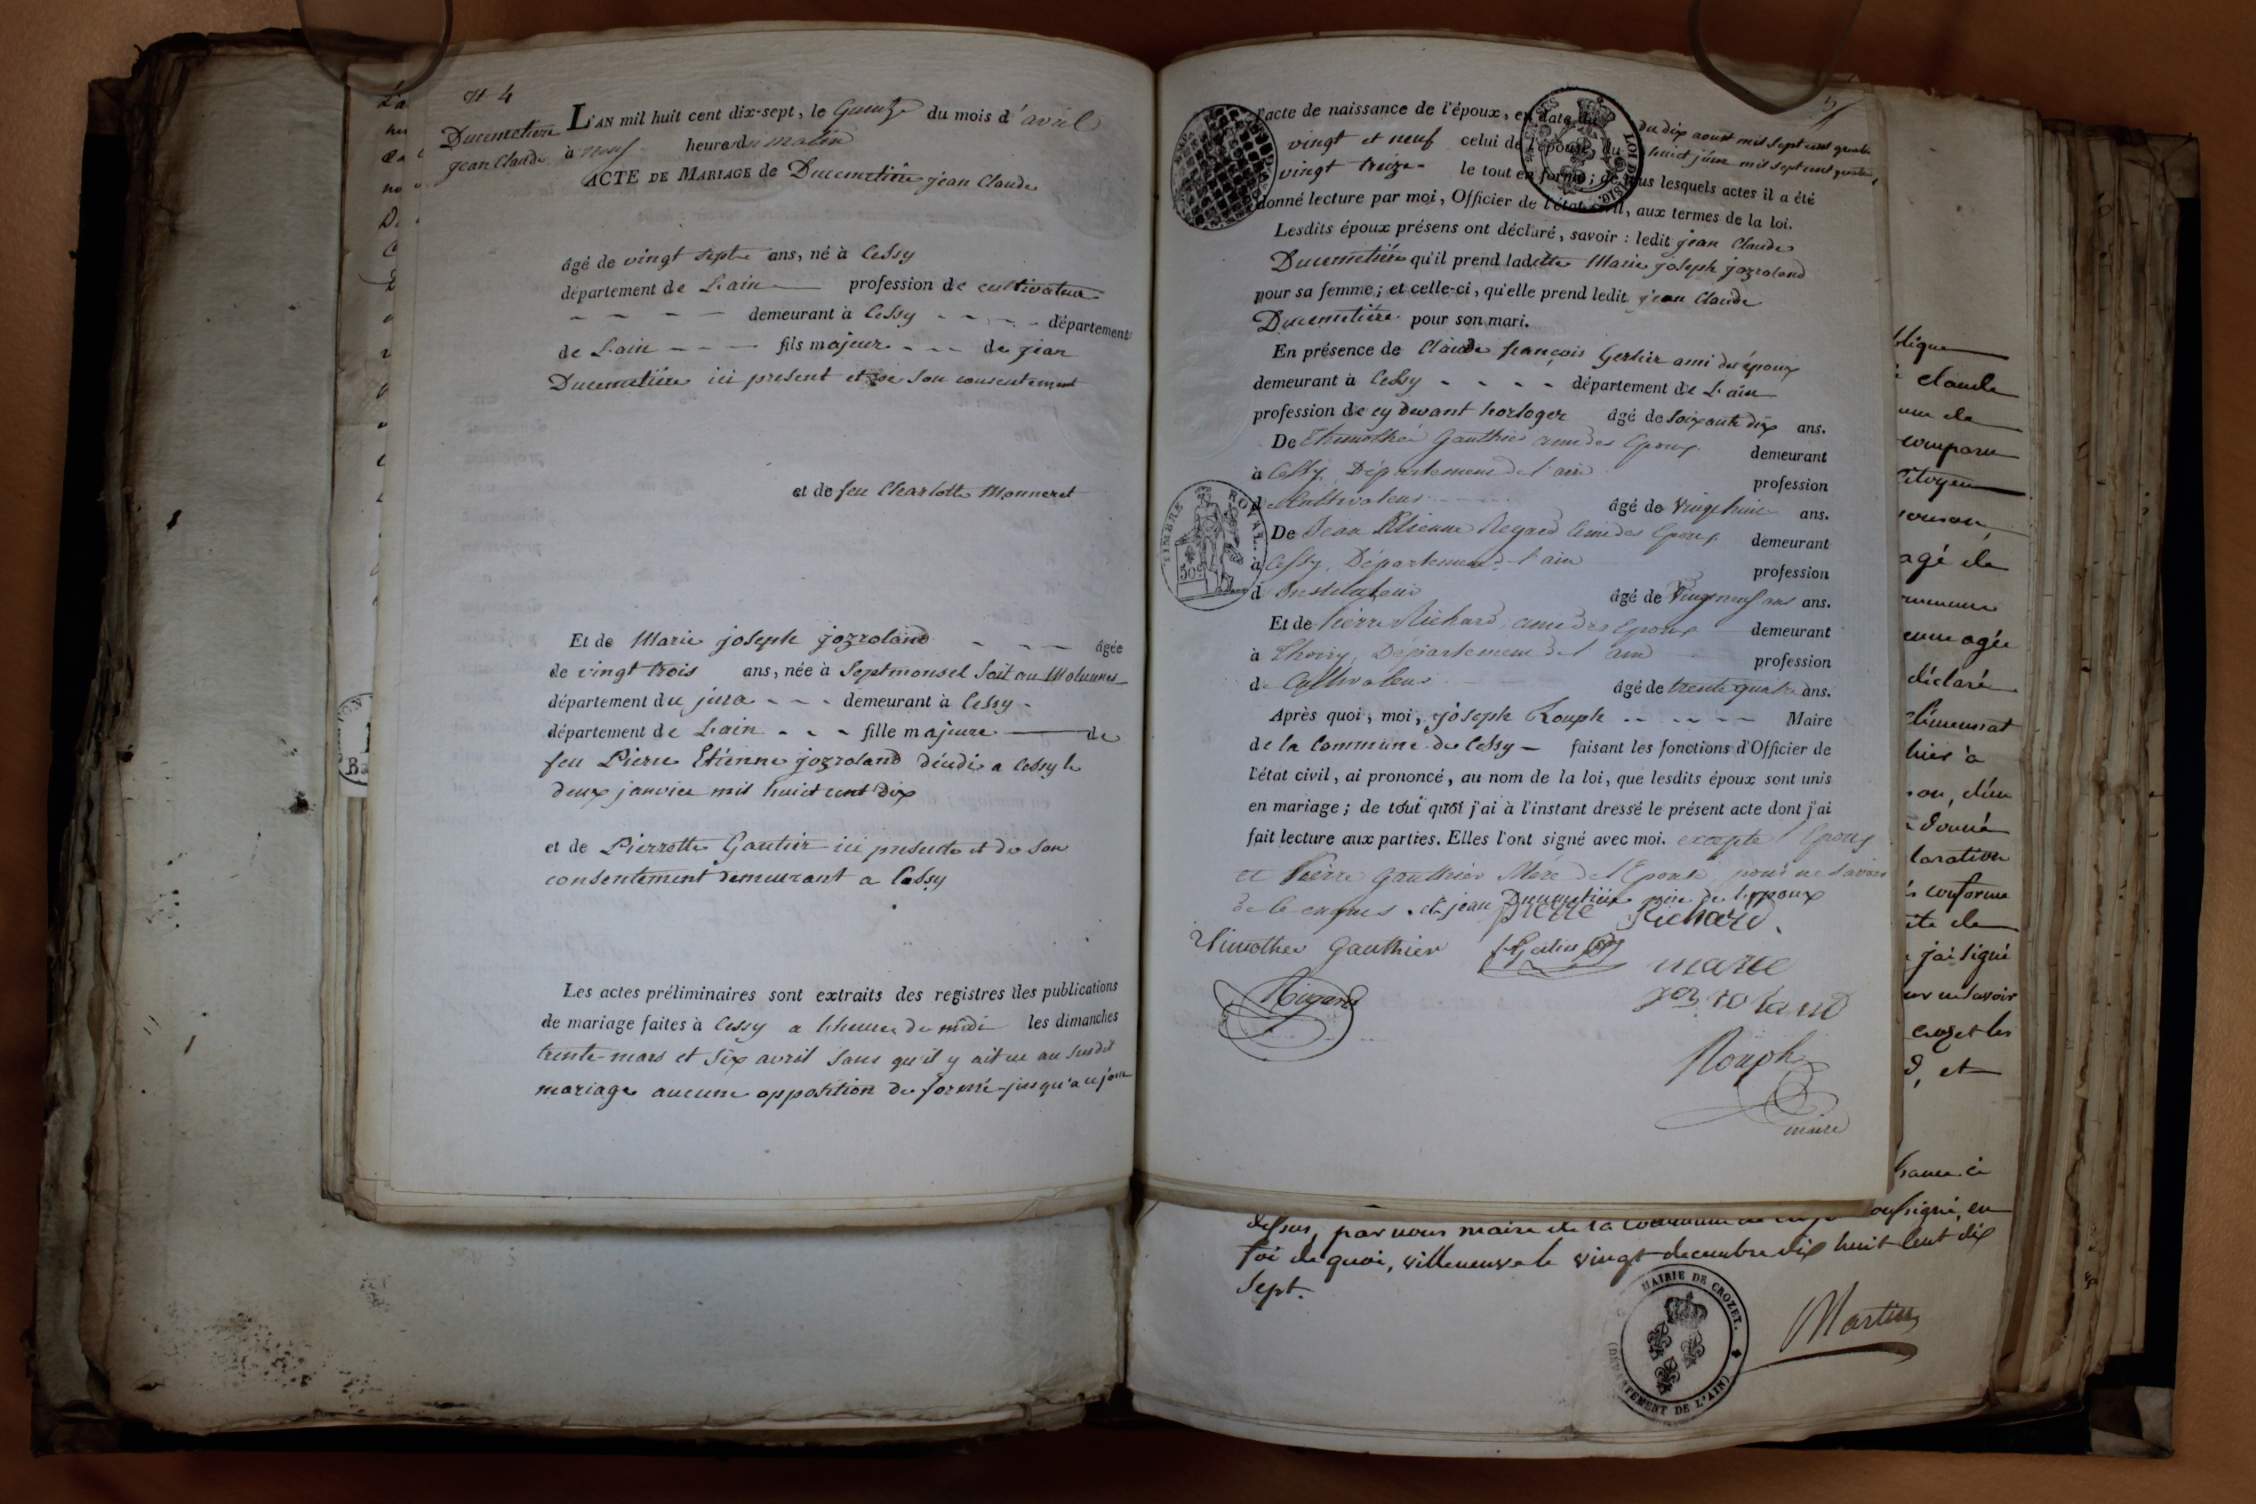 N 4
Ducimetière
jean Claude
L'AN mil huit cent dix-sept, le Quinze du mois d'avril
à neuf heure du matin
ACTE DE MARIAGE de Ducimetière jean Claude
âgé de vingt septe ans, né à Cessy
département de L'ain profession de cultivateur
demeurant à Cessy département
de L'ain fils majeur de jean
Ducimetière ici present et de son consentement
et de feu Charlotte Monneret
Et de Marie joseph jozroland âgée
de vingt trois ans, née à Septmonsel Soit au Molunnes
département du jura demeurant à Cessy
département de L'ain fille majeure de
feu Pierre Etienne jozroland décédé a Cessy le
deux janvier mil huict cent dix
et de Pierrotte Gautier ici presente et de son
consentement demeurant a Cessy
Les actes préliminaires sont extraits des registres des publications
de mariage faites à Cessy a l'heure de midi les dimanches
trente mars et six avril sans qu'il y ait eu au susdit
mariage aucune opposition de formé jusqu'a ce jour
l'acte de naissance de l'époux, en date du du dix aoust mil sept cent quatre
vingt et neuf celui de l'épouse du huict juin mil sept cent quatre
vingt treize le tout en forme; de tous lesquels actes il a été
donné lecture par moi, Officier de l'état civil, aux termes de la loi.
Lesdits époux présens ont déclaré, savoir : ledit jean Claude
Ducimetière qu'il prend ladette Marie joseph jozroland
pour sa femme; et celle-ci, qu'elle prend ledit jean Claude
Ducimetière pour son mari.
En présence de Claude françois Gerlier ami des époux
demeurant à Cessy département de L'ain
profession de cy devant horloger âgé de soixante dix ans.
De Thimothé Gauthier ami des Epoux demeurant
à Cessy, Département de l'ain profession
de Cultivateur âgé de Vingt huit ans.
De Jean Etienne Regard ami des Epoux demeurant
à Cessy, Département de l'ain profession
d Instituteur âgé de Vingt neuf ans ans.
Et de Pierre Richard ami des Epoux demeurant
à Thoiry, Département de l'ain profession
de Cultivateur âgé de trente quatre ans.
Après quoi, moi, joseph Rouph Maire
de la Commune de Cessy faisant les fonctions d'Officier de
l'état civil, ai prononcé, au nom de la loi, que lesdits époux sont unis
en mariage; de tout quoi j'ai à l'instant dressé le présent acte dont j'ai
fait lecture aux parties. Elles l'ont signé avec moi. excepté l'Epoux
et Pierre Gauthier Mère de l'Epouse pour ne savoir
de ce enquis. et jean Ducimetière père de l'époux
pierre Richard.
Timothée Gauthier
marie
jozroland
Rouph
maire
TIMBRE ROYAL.
50c
blique
claude
comparu
Citoyen
agé de
agée
déclaré
hier à
donné
laration
conforme
j'ai signé
savoir
et
dessus, par nous maire de la commune de soussigné, en
foi de quoi, villeneuve le vingt decembre dix huit cent dix
sept.
MAIRIE DE CROZET.
(DÉPARTEMENT DE L'AIN)
Martin